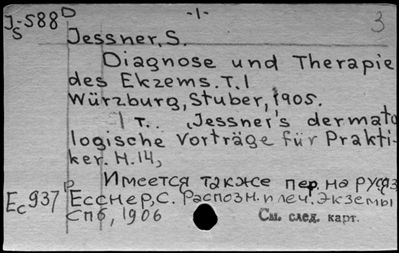 -1-
J-588 D 3
S
Jessner, S.
Diagnose und Therapie
des Ekzems. T. I
Würzburg, Stuber, 1905.
1 т. Jessner's dermato
logische Vorträge für Prakti-
ker. H. 14,
Имеется также пер. на руc. яз
Ес 937 р Есснер, С. Распозн. и леч. экземы
СПб, 1906
См. след. карт.